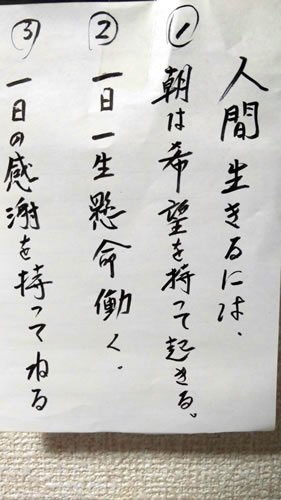 人間生きるには、
① 朝は希望を持って起きる。
② 一日一生懸命働く.
③ 一日の感謝を持ってねる